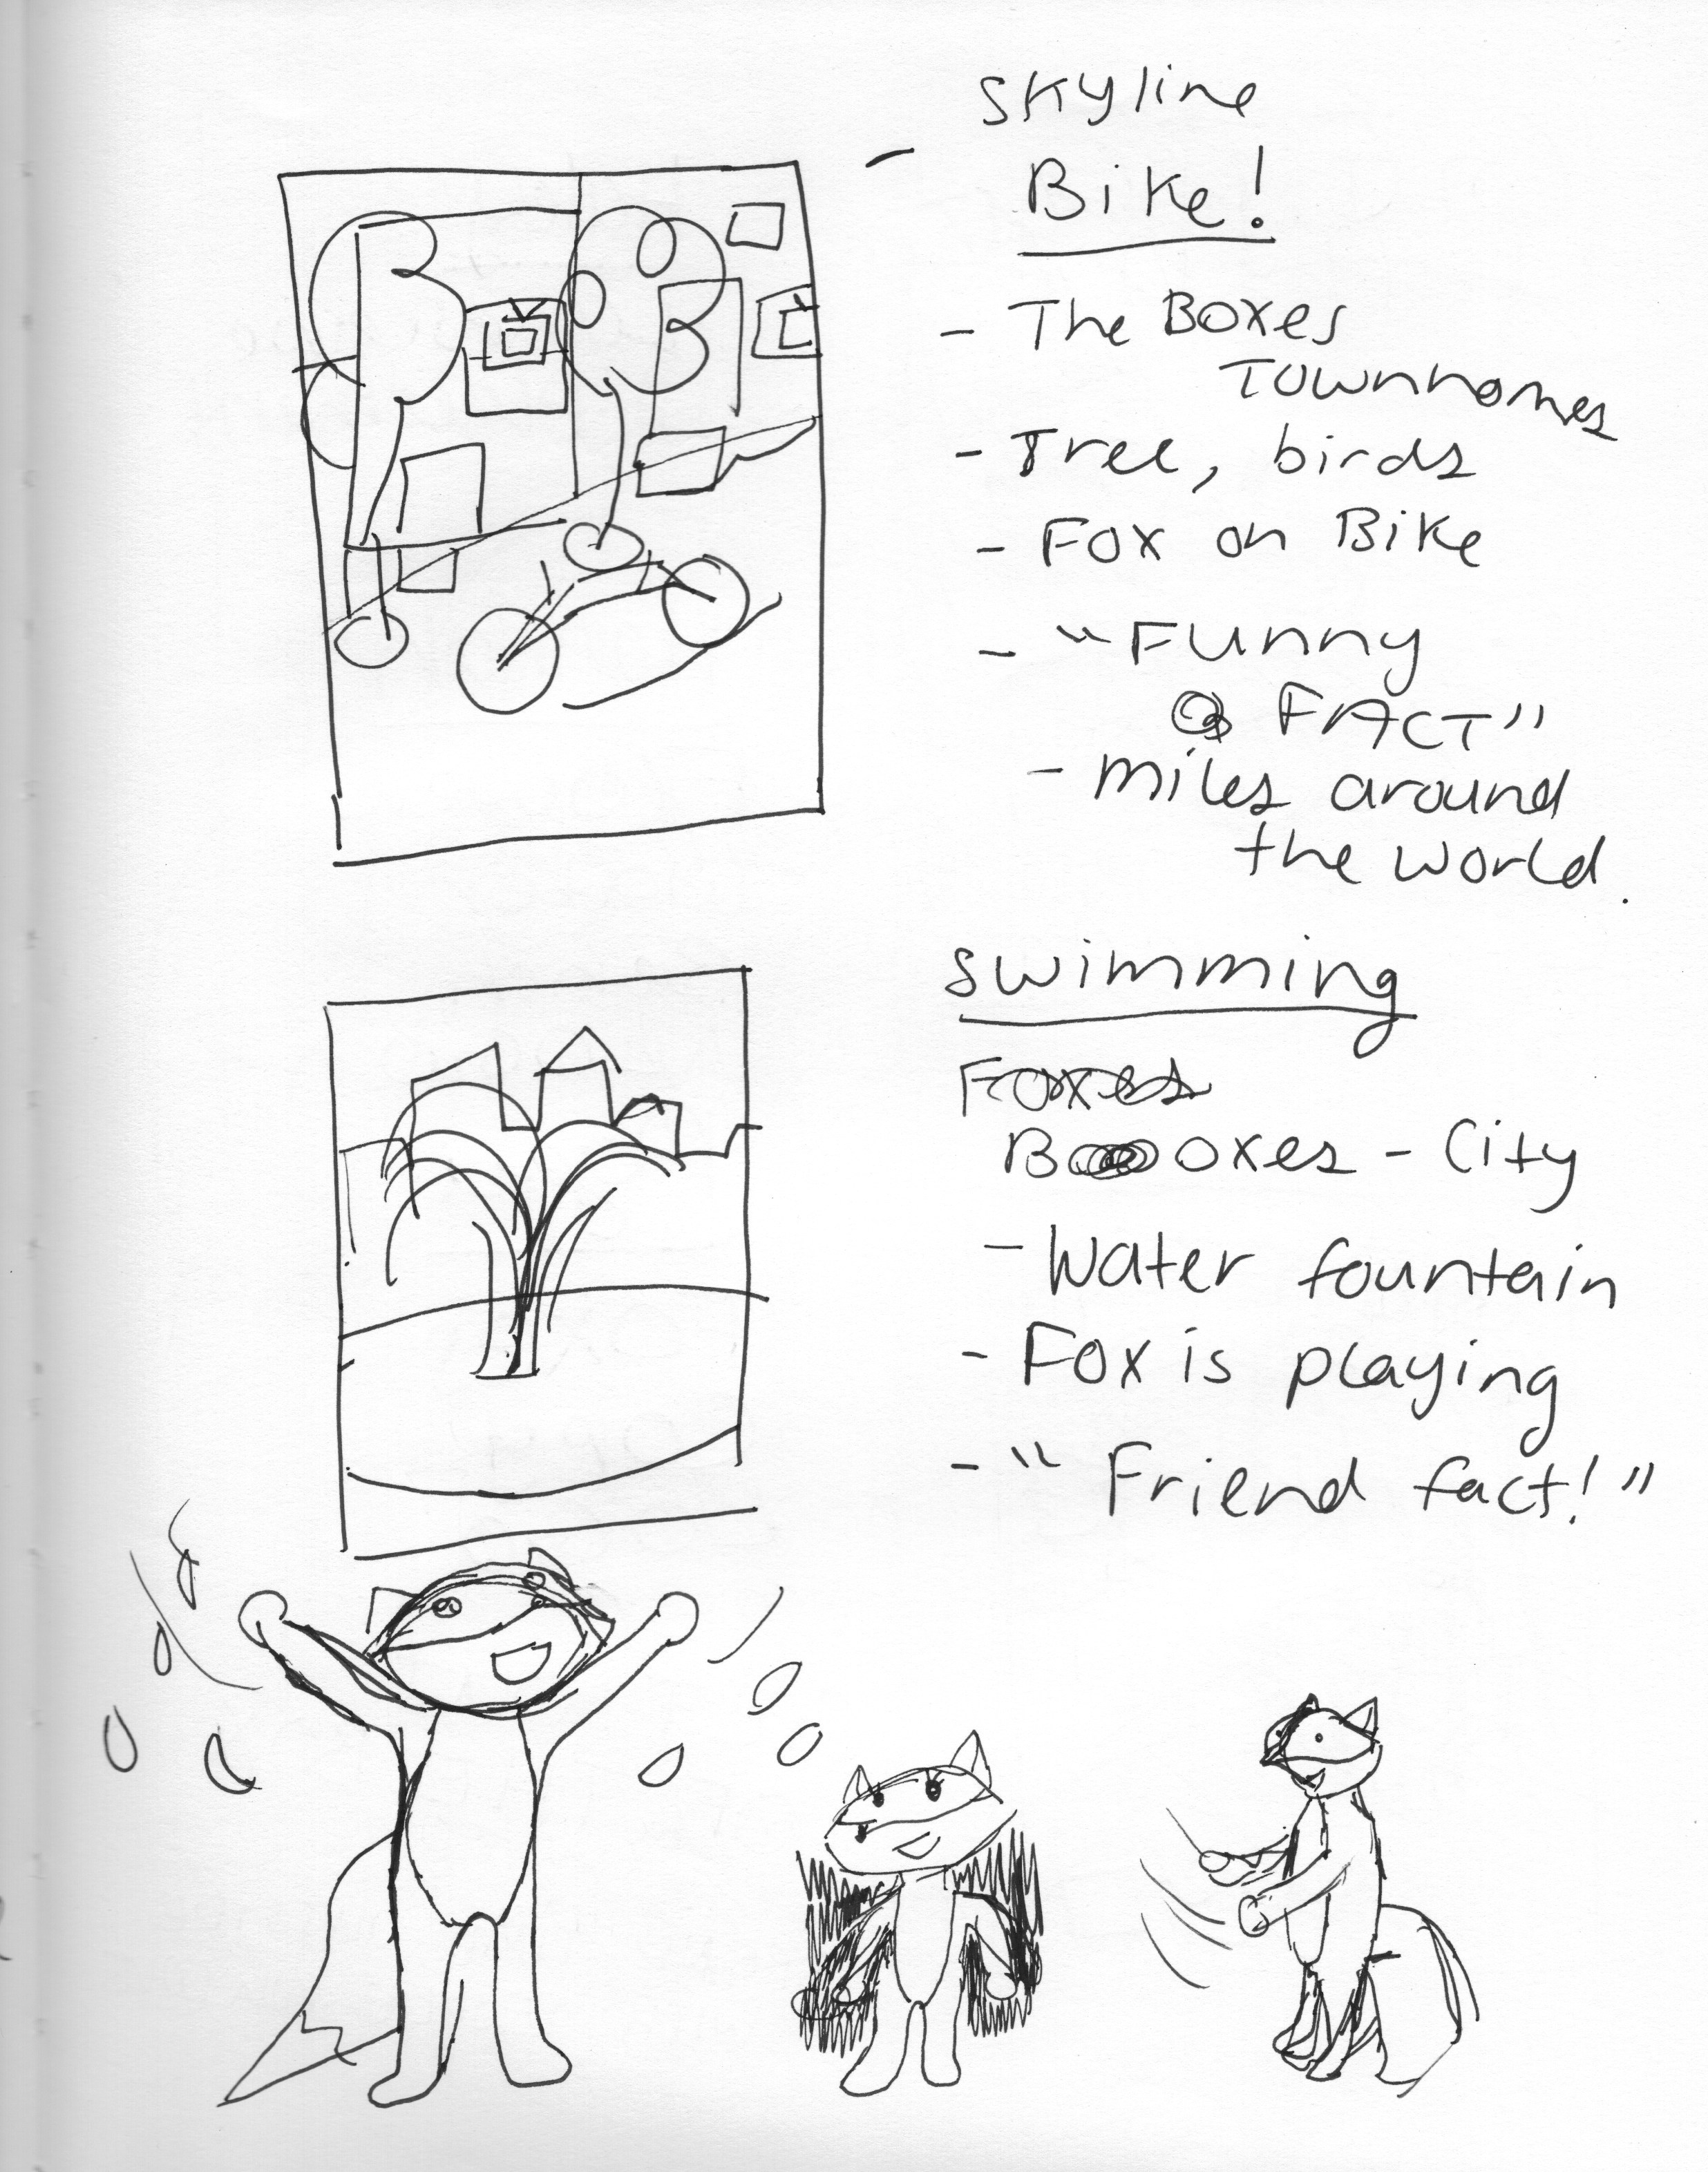 - Skyline
Bike!
- The Boxes
Townhomes
- Tree, birds
- Fox on Bike
- "Funny
FACT"
- miles around
the world.
Swimming
Foxes
Boxes - City
- Water fountain
- Fox is playing
- "Friend fact!"